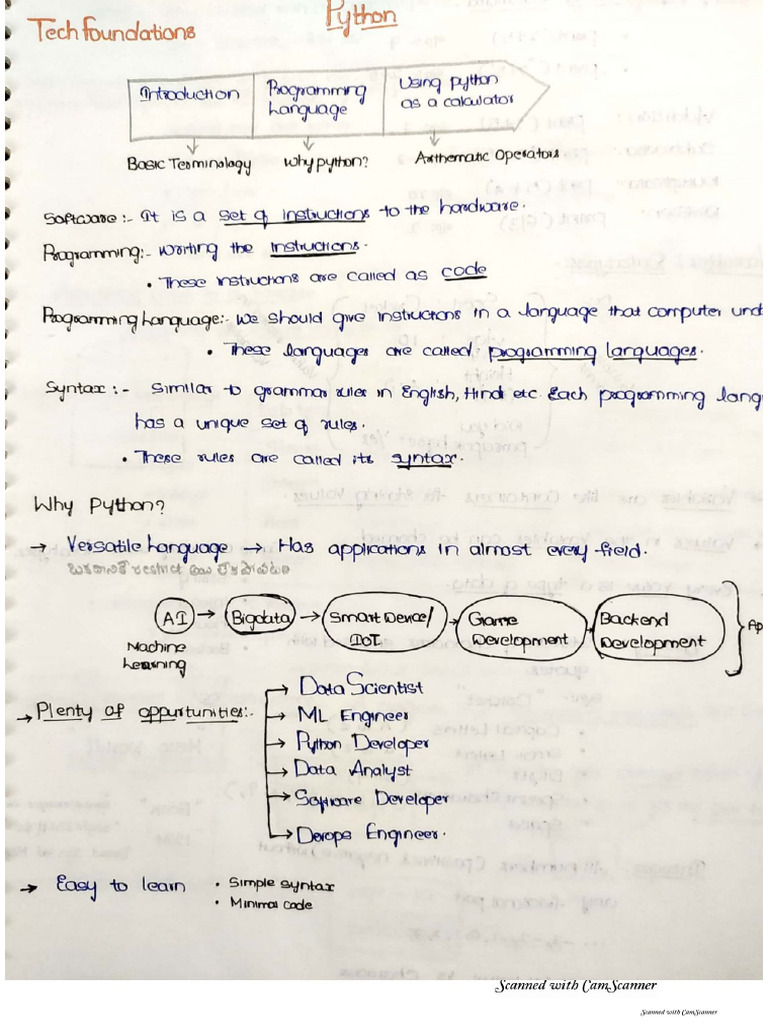 Tech Foundations
Python
Introduction
Programming
Language
Using python
as a calculator
Basic Terminology
Why python?
Arithematic Operators
Software :- It is a set of instructions to the hardware.
Programming:- Writing the instructions.
• These instructions are called as code
Programming Language:- We should give instructions in a language that computer und
• These languages are called programming languages.
Syntax :- Similar to grammar rules in English, Hindi etc. Each programming lang
has a unique set of rules.
• These rules are called its syntax.
Why Python?
→ Versatile Language → Has applications in almost every field.
restrict
AI → Bigdata → Smart Device/ IOT → Game Development → Backend Development } Ap
Machine
Learning
→ Plenty of oppurtunities:-
→ Data Scientist
→ ML Engineer
→ Python Developer
→ Data Analyst
→ Software Developer
→ Devops Engineer.
→ Easy to learn
• Simple syntax
• Minimal code
Scanned with CamScanner
Scanned with CamScanner